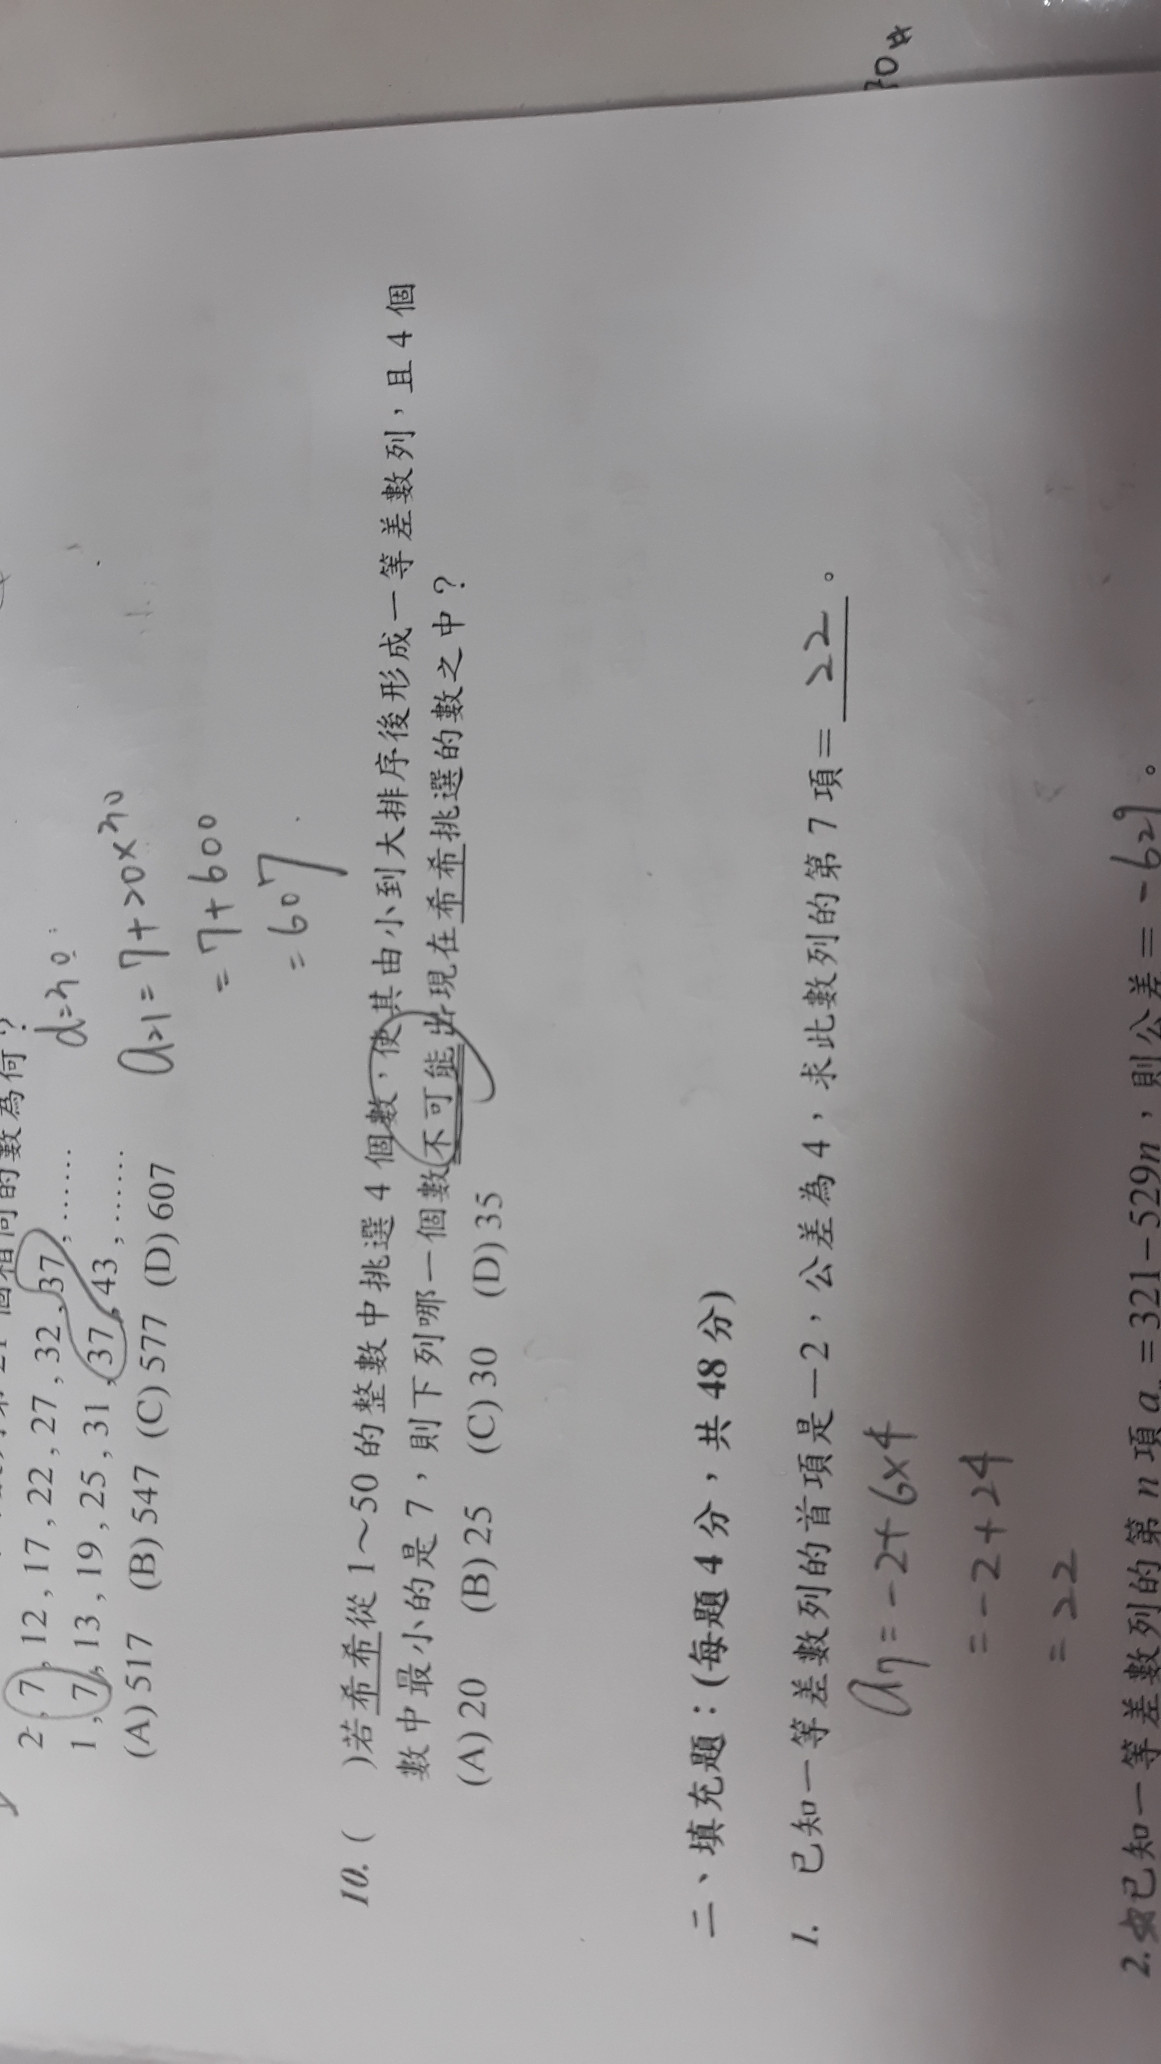 個相同的數為何？
2 , 7 , 12 , 17 , 22 , 27 , 32 , 37 , ……
1 , 7 , 13 , 19 , 25 , 31 , 37 , 43 , ……
(A) 517 (B) 547 (C) 577 (D) 607
d=30
a21 = 7+20×30
= 7+600
= 607
10. ( )若希希從 1～50 的整數中挑選 4 個數，使其由小到大排序後形成一等差數列，且 4 個
數中最小的是 7，則下列哪一個數不可能出現在希希挑選的數之中？
(A) 20 (B) 25 (C) 30 (D) 35
二、填充題：(每題 4 分，共 48 分)
1. 已知一等差數列的首項是－2，公差為 4，求此數列的第 7 項＝ 22 。
a7 = -2+6×4
= -2+24
= 22
2. 已知一等差數列的第 n 項 an =321－529n，則公差＝ -529 。